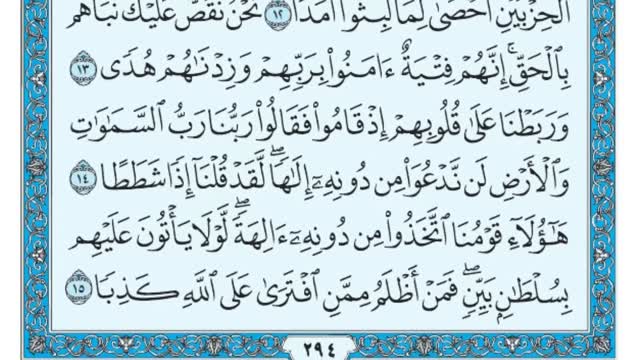 ٱلۡحِزۡبَيۡنِ أَحۡصَىٰ لِمَا لَبِثُوٓاْ أَمَدٗا ١٢ نَّحۡنُ نَقُصُّ عَلَيۡكَ نَبَأَهُم
بِٱلۡحَقِّۚ إِنَّهُمۡ فِتۡيَةٌ ءَامَنُواْ بِرَبِّهِمۡ وَزِدۡنَٰهُمۡ هُدٗى ١٣
وَرَبَطۡنَا عَلَىٰ قُلُوبِهِمۡ إِذۡ قَامُواْ فَقَالُواْ رَبُّنَا رَبُّ ٱلسَّمَٰوَٰتِ
وَٱلۡأَرۡضِ لَن نَّدۡعُوَاْ مِن دُونِهِۦٓ إِلَٰهٗاۖ لَّقَدۡ قُلۡنَآ إِذٗا شَطَطًا ١٤
هَٰٓؤُلَآءِ قَوۡمُنَا ٱتَّخَذُواْ مِن دُونِهِۦٓ ءَالِهَةٗۖ لَّوۡلَا يَأۡتُونَ عَلَيۡهِم
بِسُلۡطَٰنِۭ بَيِّنٖۖ فَمَنۡ أَظۡلَمُ مِمَّنِ ٱفۡتَرَىٰ عَلَى ٱللَّهِ كَذِبٗا ١٥
٢٩٤